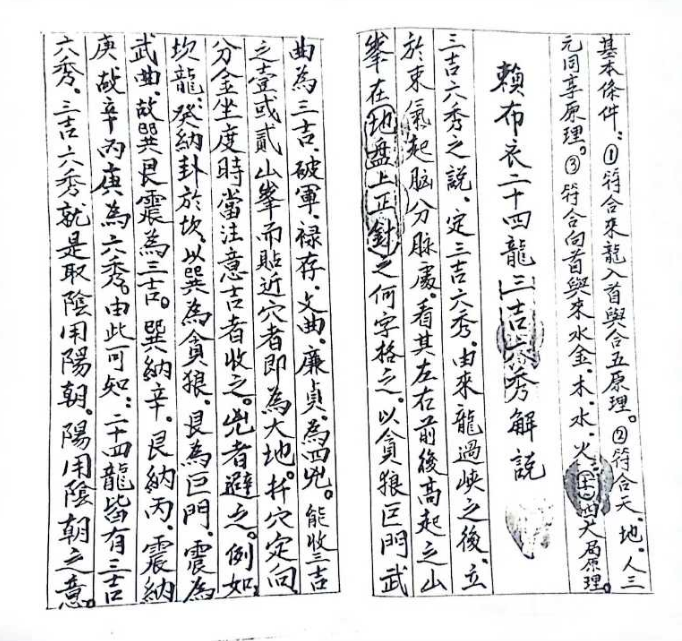 基本條件：①符合來龍入首與合五原理。②符合天、地、人三
元同享原理。③符合向首與來水金、木、水、火、(土)四大局原理。
賴布衣二十四龍三吉六秀解說
三吉六秀之說、定三吉六秀、由來龍過峽之後、立
於束氣起腦分脉處、看其左右前後高起之山
峯在地盤上正針之何字格之、以貪狼巨門武
曲為三吉、破軍、禄存、文曲、廉貞、為四兇。能收三吉
之壹或貳山峯而貼近穴者即為大地。扦穴定向
分金坐度時當注意吉者收之。兇者避之。例如：
坎龍：癸納卦於坎、以巽為貪狼、艮為巨門、震為
武曲、故巽艮震為三吉。巽納辛、艮納丙、震納
庚、故辛丙庚為六秀。由此可知：二十四龍皆有三吉
六秀、三吉六秀就是取陰用陽朝、陽用陰朝之意。